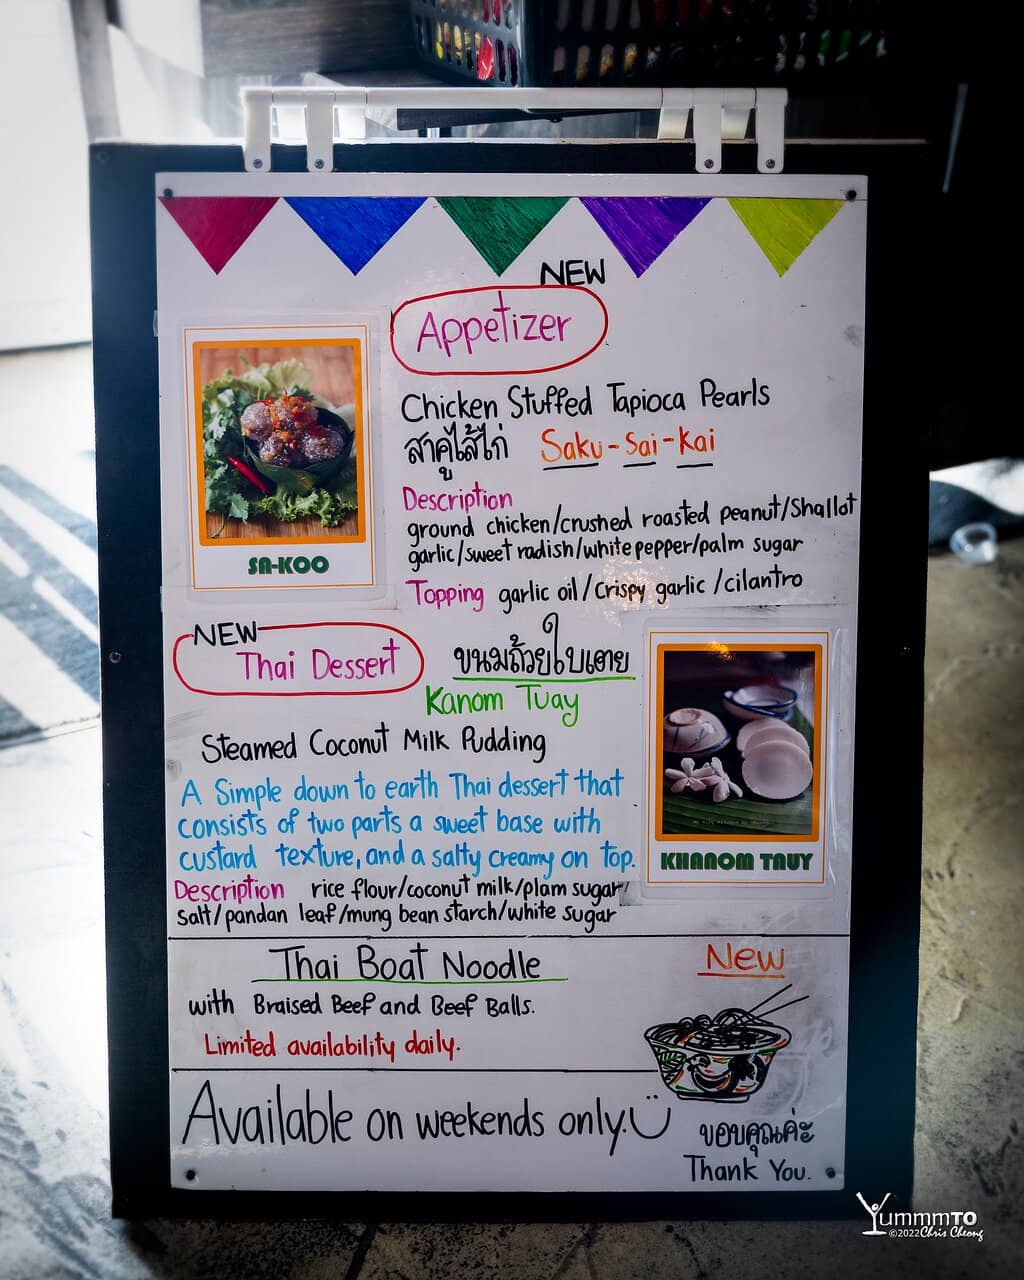 NEW
Appetizer
Chicken Stuffed Tapioca Pearls
สาคูไส้ไก่ Saku-Sai-Kai
Description
ground chicken/crushed roasted peanut/Shallot
garlic/sweet radish/white pepper/palm sugar
Topping garlic oil/Crispy garlic/cilantro
SA-KOO
NEW
Thai Dessert
ขนมถ้วยใบเตย
Kanom Tuay
Steamed Coconut Milk Pudding
A Simple down to earth Thai dessert that
consists of two parts a sweet base with
custard texture, and a salty creamy on top.
Description rice flour/coconut milk/plam sugar/
salt/pandan leaf/mung bean starch/white sugar
KHANOM TAUY
Thai Boat Noodle
New
with Braised Beef and Beef Balls.
Limited availability daily.
Available on weekends only.
ขอบคุณค่ะ
Thank You.
YummmTO
©2022 Chris Cheong